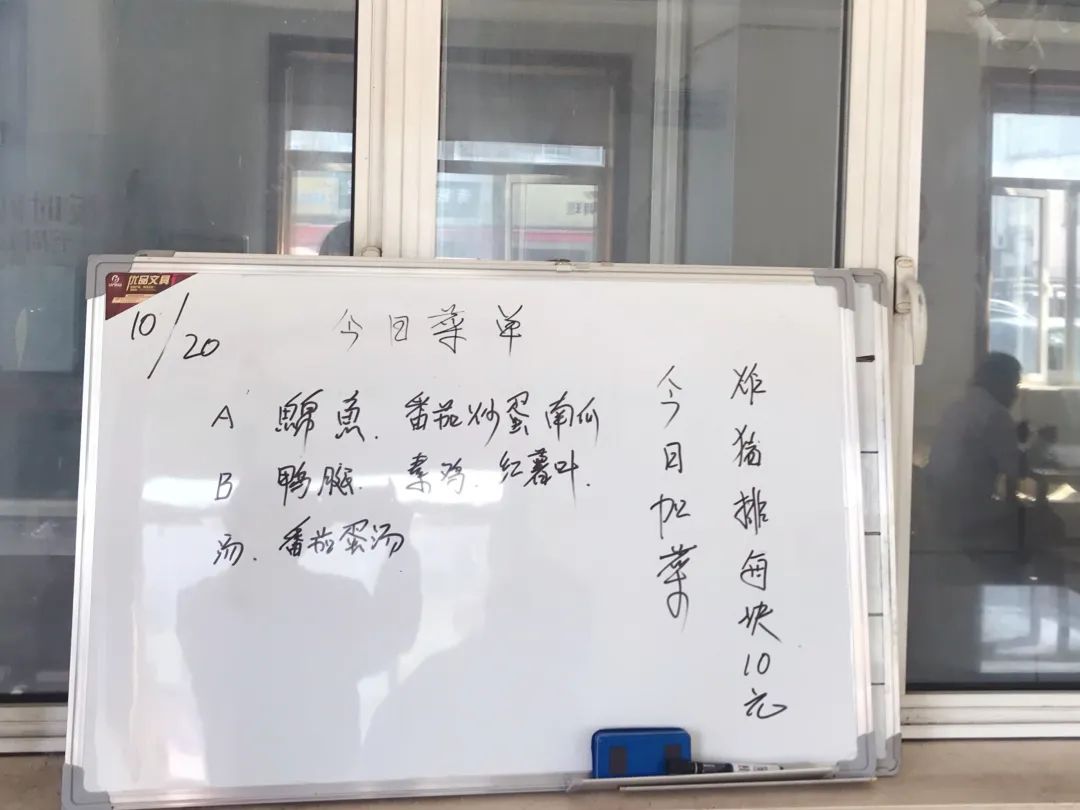 优品文具
10/20
今日菜单
A 魚. 番茄炒蛋 南瓜
B 鸭腿. 素鸡. 红薯叶.
汤. 番茄蛋汤
今日加菜
炸猪排每块10元